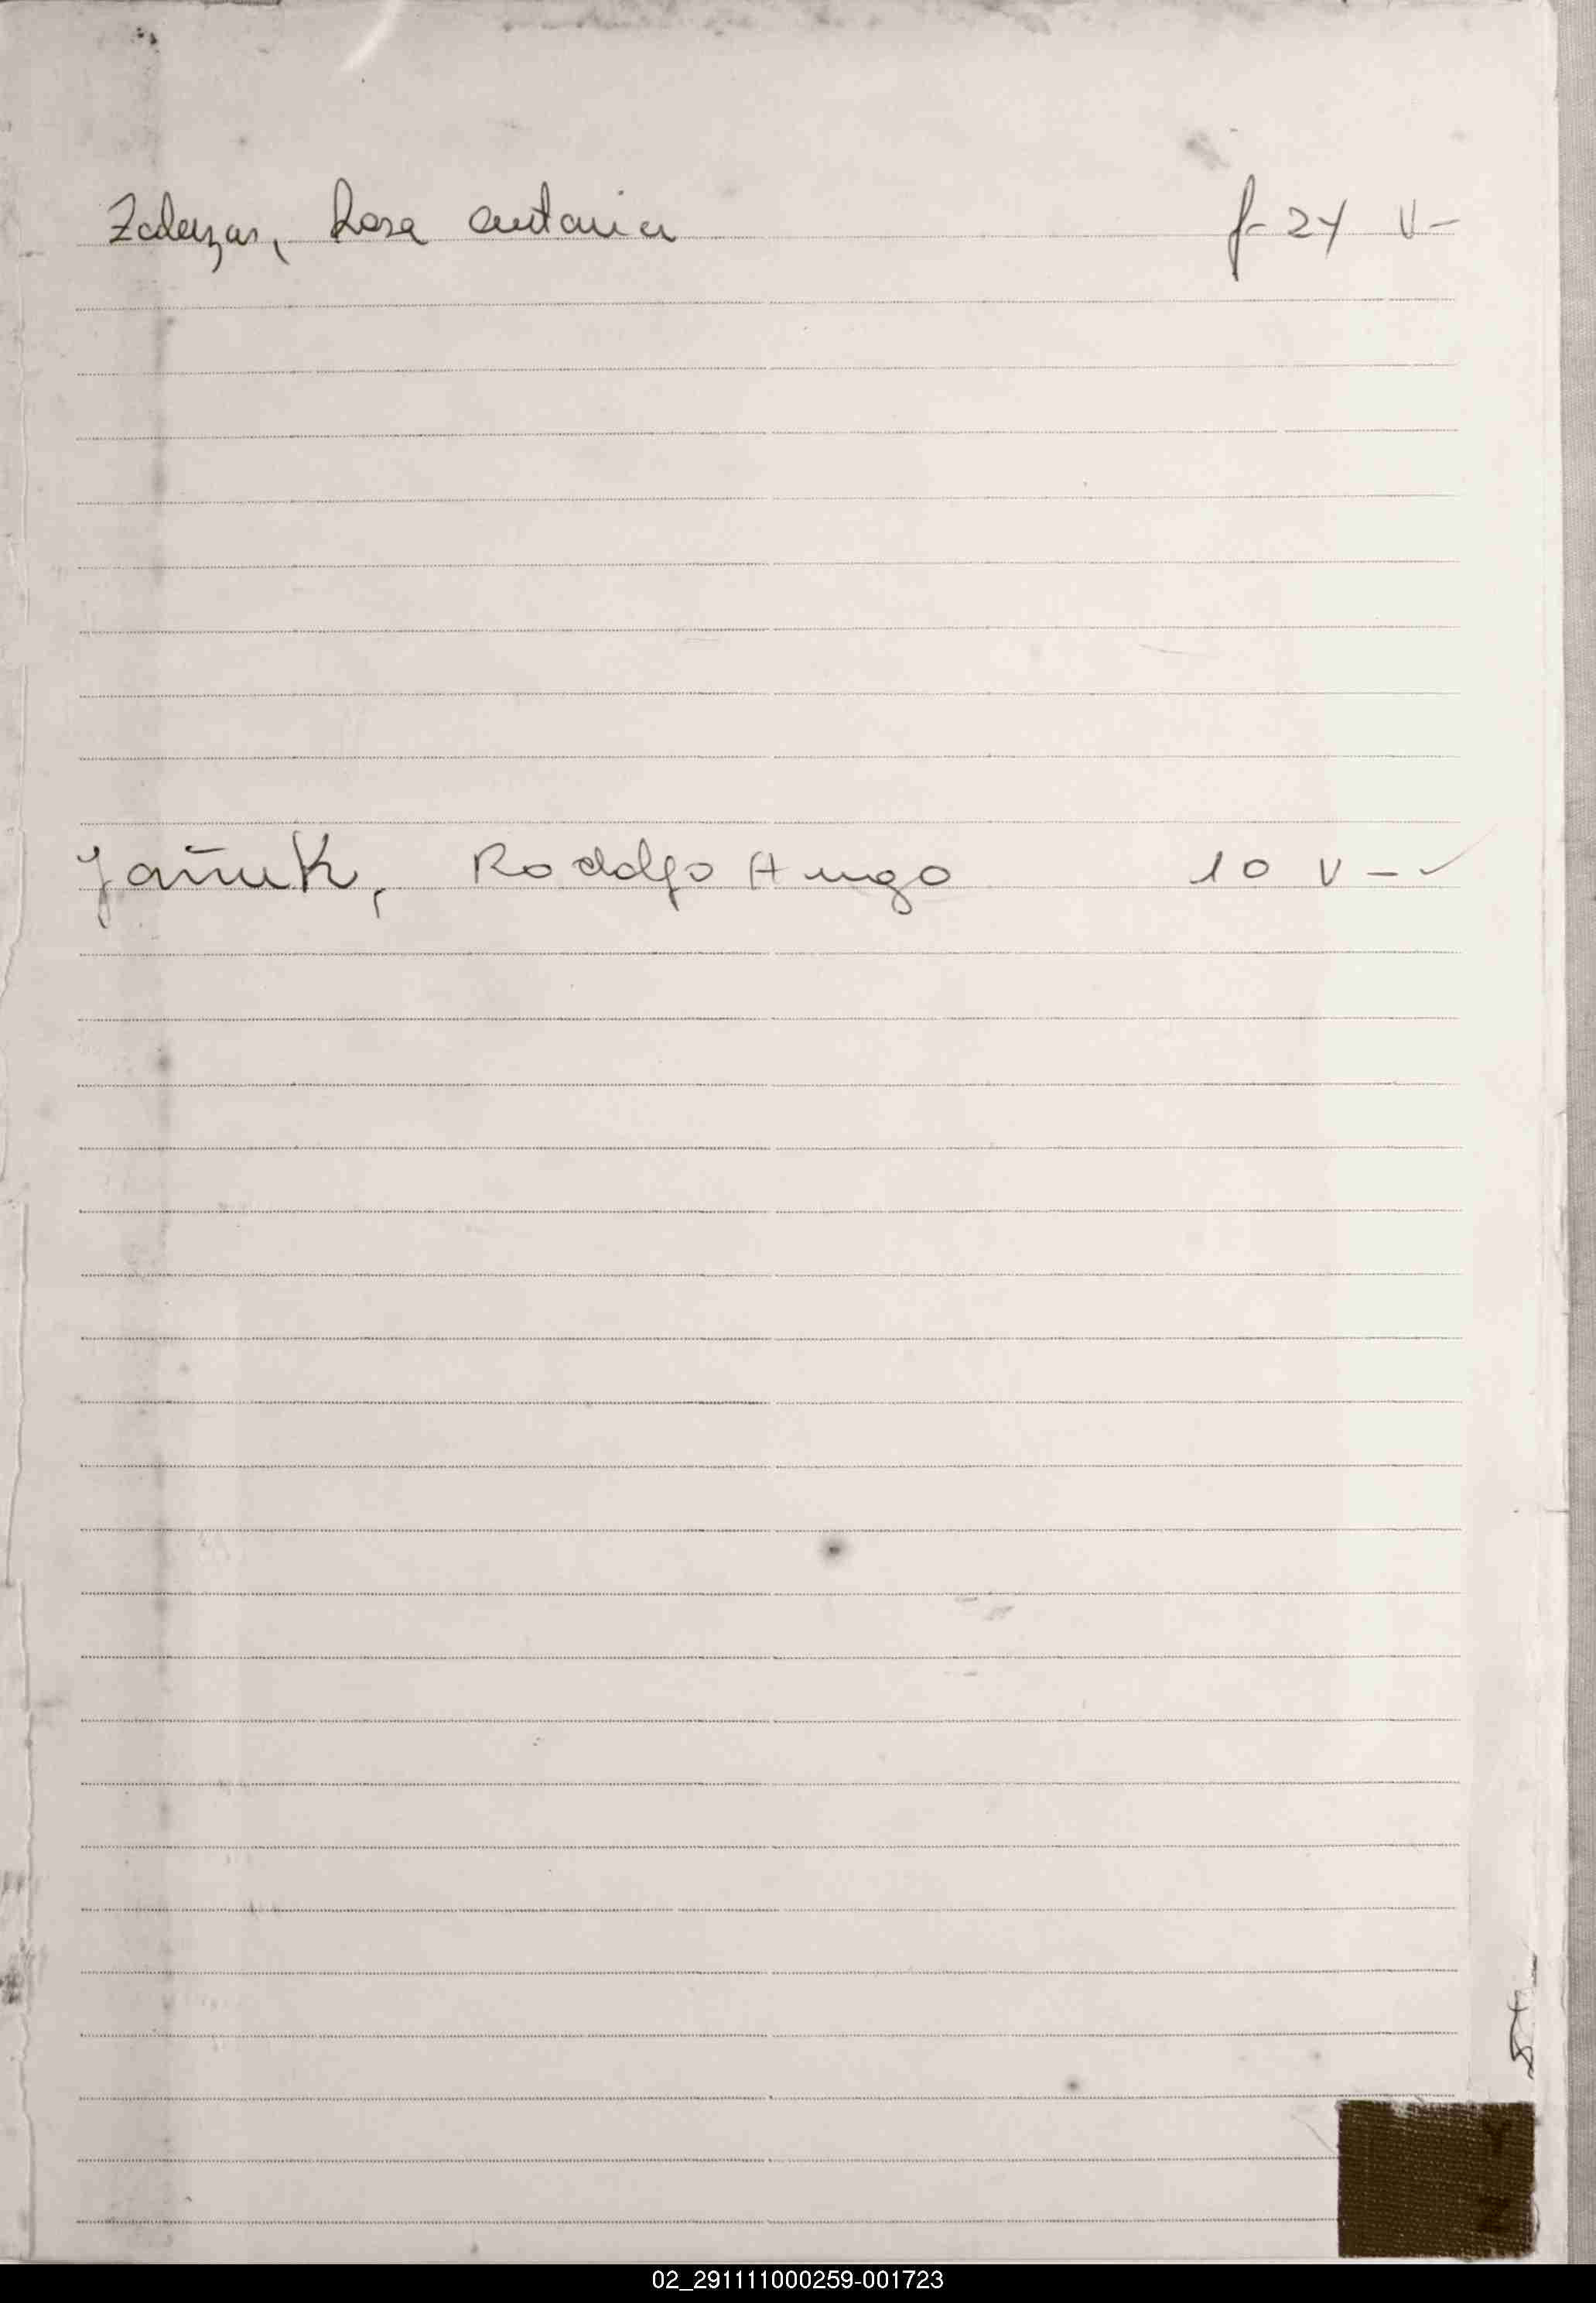 Zalazar, Rosa Antonia f- 24 V-
Yañuk, Rodolfo Hugo 10 V -
Y
Z
02_291111000259-001723